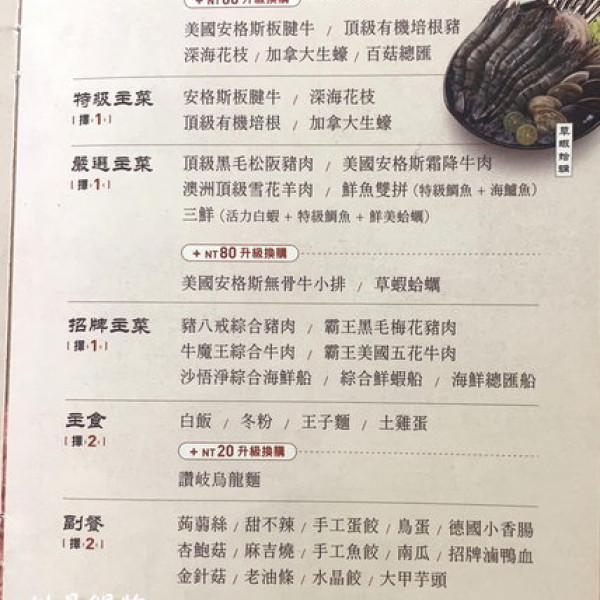 美國安格斯板腱牛 / 頂級有機培根豬
深海花枝 / 加拿大生蠔 / 百菇總匯
特級主菜 安格斯板腱牛 / 深海花枝
[ 擇·1· ] 頂級有機培根 / 加拿大生蠔
草蝦蛤蠣
嚴選主菜 頂級黑毛松阪豬肉 / 美國安格斯霜降牛肉
[ 擇·1· ] 澳洲頂級雪花羊肉 / 鮮魚雙拼 (特級鯛魚 + 海鱺魚)
三鮮 (活力白蝦 + 特級鯛魚 + 鮮美蛤蠣)
+ NT80 升級換購
美國安格斯無骨牛小排 / 草蝦蛤蠣
招牌主菜 豬八戒綜合豬肉 / 霸王黑毛梅花豬肉
[ 擇·1· ] 牛魔王綜合牛肉 / 霸王美國五花牛肉
沙悟淨綜合海鮮船 / 綜合鮮蝦船 / 海鮮總匯船
主食 白飯 / 冬粉 / 王子麵 / 土雞蛋
[ 擇·2· ] + NT20 升級換購
讚岐烏龍麵
副餐 蒟蒻絲 / 甜不辣 / 手工蛋餃 / 鳥蛋 / 德國小香腸
[ 擇·2· ] 杏鮑菇 / 麻吉燒 / 手工魚餃 / 南瓜 / 招牌滷鴨血
金針菇 / 老油條 / 水晶餃 / 大甲芋頭